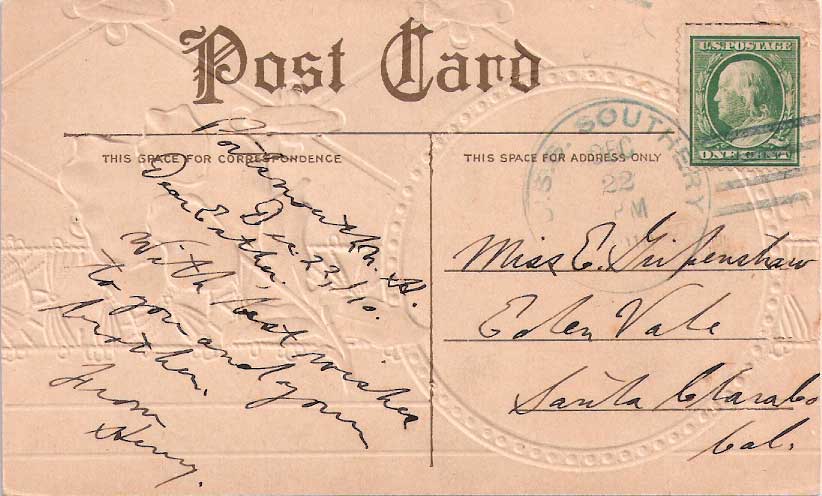 Post Card
THIS SPACE FOR CORRESPONDENCE
THIS SPACE FOR ADDRESS ONLY
Portsmouth N.H.
Dec. 23, '10.
Dear Esther,
With best wishes
to you and your
brother.
From
Henry.
U.S. POSTAGE
ONE CENT
U.S.S. SOUTHERY
DEC
22
PM
Miss E.
Eden Vale
Santa Clara Co
Cal.